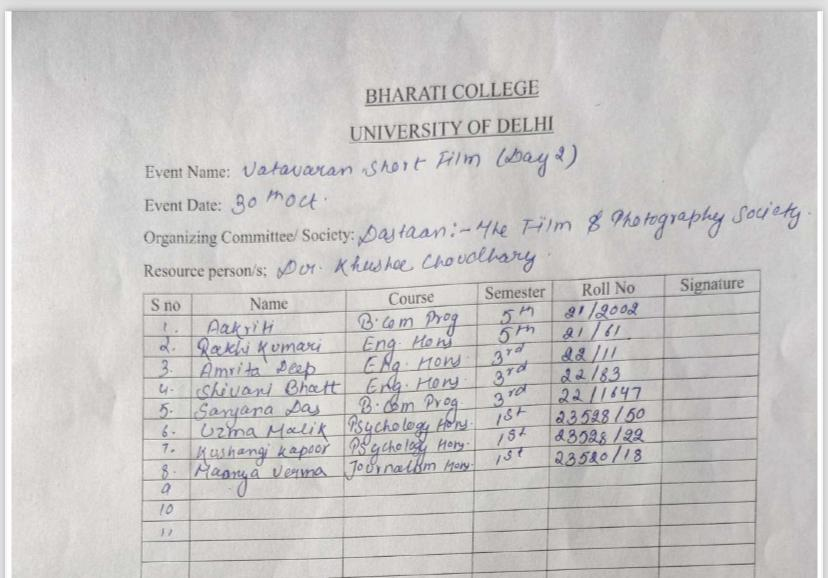 BHARATI COLLEGE
UNIVERSITY OF DELHI
Event Name: Vatavaran Short Film (Day 2)
Event Date: 30th Oct.
Organizing Committee/ Society: Dastaan:- The Film & Photography Society.
Resource person/s: Dr. Khushee Choudhary.
S no Name Course Semester Roll No Signature
1. Aakriti B.Com Prog 5th 21/2002
2. Rakhi Kumari Eng. Hons 5th 21/61
3. Amrita Deep Eng. Hons. 3rd 22/11
4. Shivani Bhatt Eng. Hons. 3rd 22/83
5. Sanjana Das B.Com Prog. 3rd 22/1647
6. Uzma Malik Psychology Hons. 1st 23528/50
7. Kushangi Kapoor Psychology Hons. 1st 23528/22
8. Maanya Verma Journalism Hons. 1st 23520/18
9
10
11